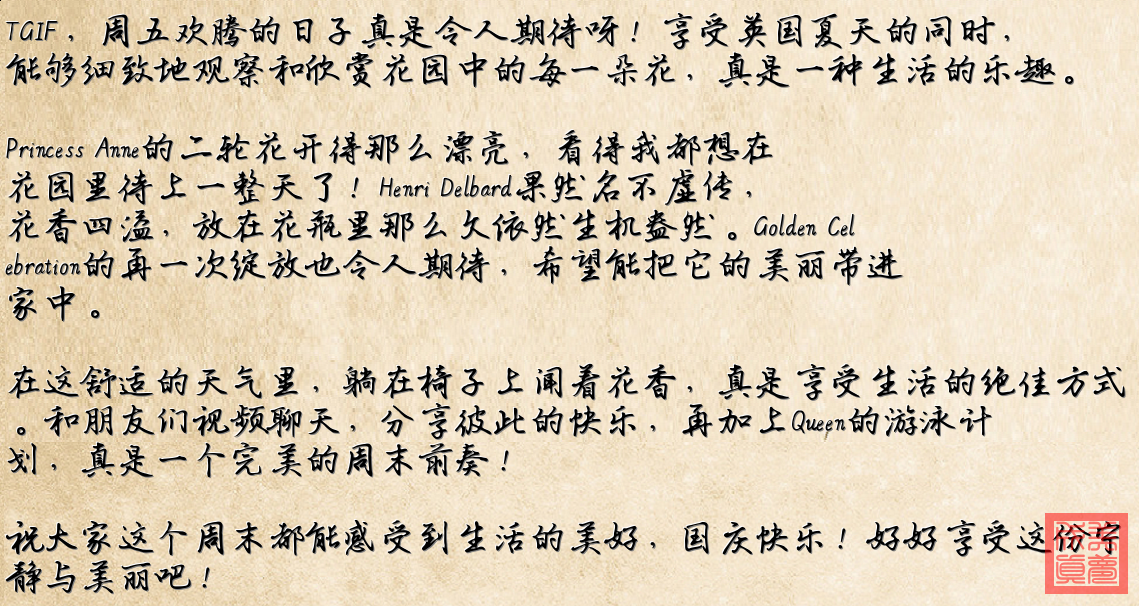 TGIF，周五欢腾的日子真是令人期待呀！享受英国夏天的同时，
能够细致地观察和欣赏花园中的每一朵花，真是一种生活的乐趣。
Princess Anne的二轮花开得那么漂亮，看得我都想在
花园里待上一整天了！Henri Delbard果然名不虚传，
花香四溢，放在花瓶里那么久依然生机盎然。Golden Cel
ebration的再一次绽放也令人期待，希望能把它的美丽带进
家中。
在这舒适的天气里，躺在椅子上闻着花香，真是享受生活的绝佳方式
。和朋友们视频聊天，分享彼此的快乐，再加上Queen的游泳计
划，真是一个完美的周末前奏！
祝大家这个周末都能感受到生活的美好，国庆快乐！好好享受这份宁
静与美丽吧！